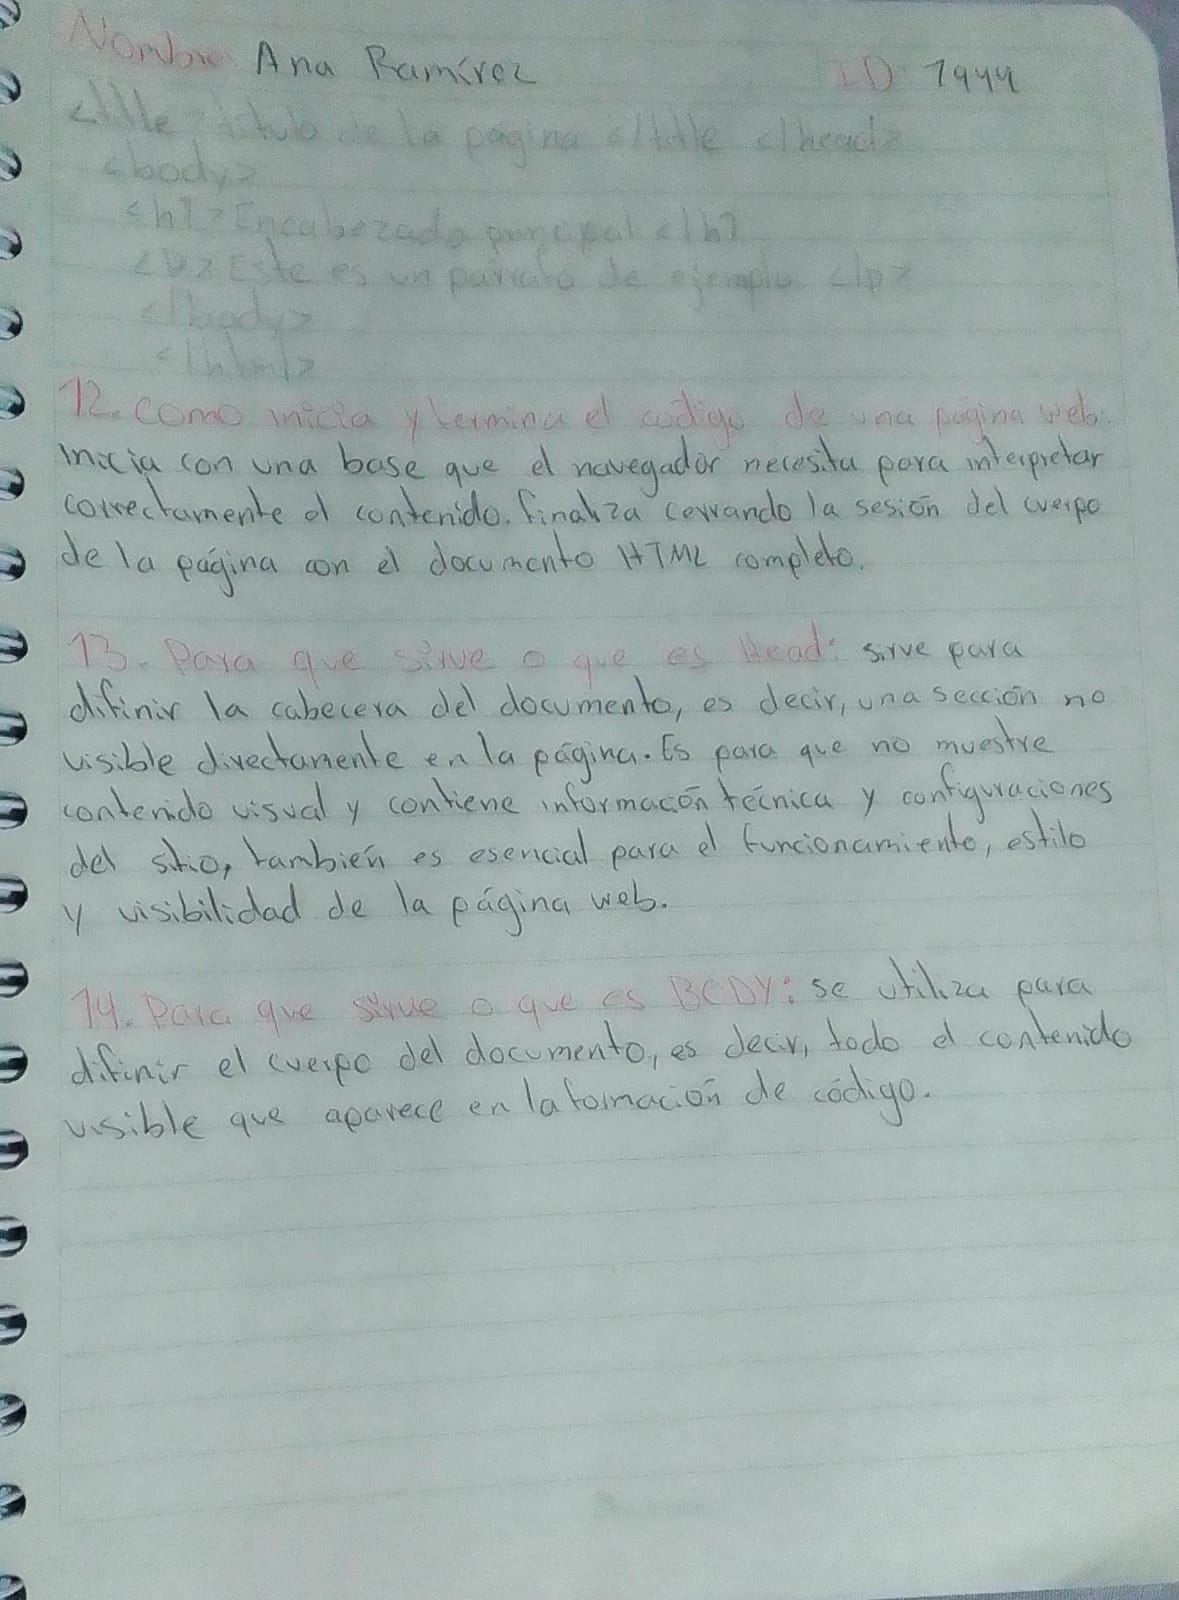 Nombre: Ana Ramírez ID: 7944
<title> titulo de la página </title </head>
<body>
<h1> Encabezado principal </h1
<p> Este es un párrafo de ejemplo. </p>
</body>
</html>
12. Como inicia y termina el codigo de una página web:
inicia con una base que el navegador necesita para interpretar
correctamente el contenido. finaliza cerrando la sesión del cuerpo
de la página con el documento HTML completo.
13. Para que sirve o que es Head: sirve para
difinir la cabecera del documento, es decir, una sección no
visible directamente en la página. Es para que no muestre
contenido visual y contiene información técnica y configuraciones
del sitio, también es esencial para el funcionamiento, estilo
y visibilidad de la página web.
14. Para que sirve o que es BODY: se utiliza para
difinir el cuerpo del documento, es decir, todo el contenido
visible que aparece en la formación de código.